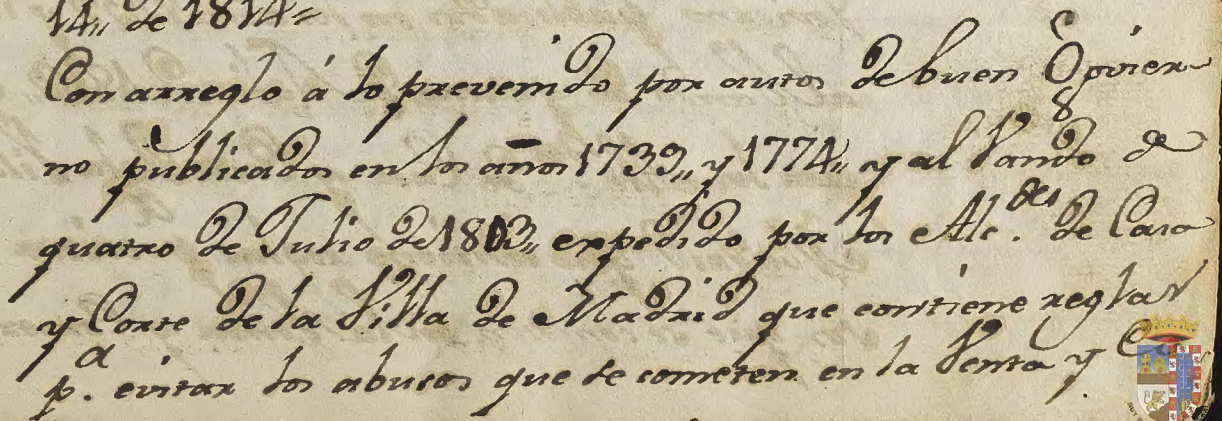 14,, de 1814=
Con arreglo á lo prevenido por autos de buen Govier-
no publicados en los años 1739,, y 1774,, y al Vando de
quatro de Julio de 1803,, expedido por los Alc.des de Casa
y Corte de la Villa de Madrid que contiene reglas
p.a evitar los abusos que se cometen en la Venta y